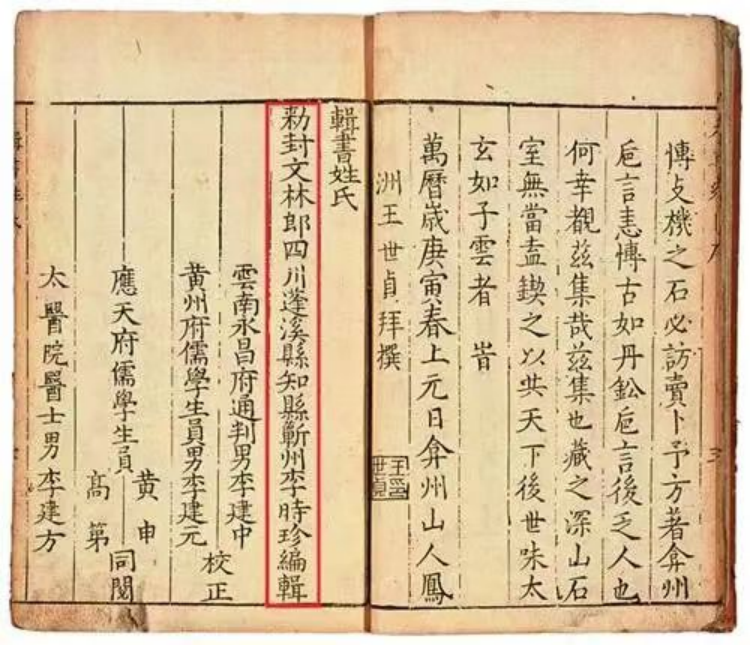 愽攴機之石必訪賣卜予方著弇州
卮言恚愽古如丹鈆卮言後乏人也
何幸覩茲集哉茲集也藏之深山石
室無當盍鍥之以共天下後世味太
玄如子雲者 旹
萬曆歲庚寅春上元日弇州山人鳳
洲王世貞拜撰
輯書姓氏
勑封文林郎四川蓬溪縣知縣蘄州李時珍編輯
雲南永昌府通判男李建中
黄州府儒學生員男李建元
校正
應天府儒學生員
黄申
高第
同閱
太醫院醫士男李建方